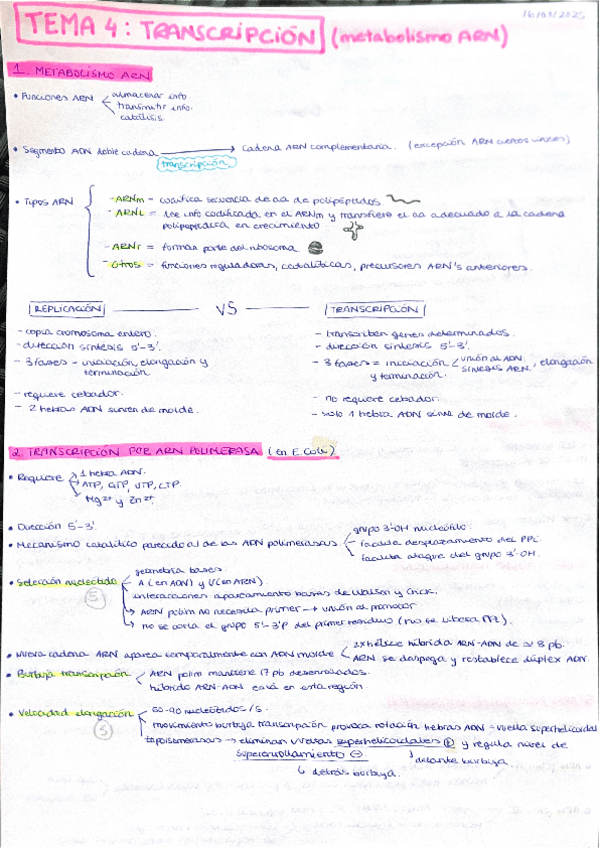 16/09/2025
TEMA 4: TRANSCRIPCIÓN (metabolismo ARN)
1. METABOLISMO ARN
• Funciones ARN
almacenar info.
transmitir info.
catálisis.
• Segmento ADN doble cadena → Cadena ARN complementaria. (excepción ARN ciertos virus)
transcripción
• Tipos ARN
- ARNm - codifica secuencia de aa de polipéptidos
- ARNt = lee info codificada en el ARNm y transfiere el aa adecuado a la cadena
polipeptídica en crecimiento
- ARNr = forman parte del ribosoma
- Otros = funciones reguladoras, catalíticas, precursores ARN's anteriores.
REPLICACIÓN VS TRANSCRIPCIÓN
- copia cromosoma entero.
- dirección síntesis 5'-3'.
- 3 fases - iniciación, elongación y
terminación
- requiere cebador.
- 2 hebras ADN sirven de molde.
- transcriben genes determinados.
- dirección síntesis 5'-3'.
- 3 fases = iniciación < unión al ADN / síntesis ARN, elongación
y terminación.
- no requiere cebador.
- solo 1 hebra ADN sirve de molde.
2. TRANSCRIPCIÓN POR ARN POLIMERASA (en E. Coli)
• Requiere
1 hebra ADN.
ATP, GTP, UTP, CTP.
Mg²⁺ y Zn²⁺.
• Dirección 5'-3'
• Mecanismo catalítico parecido al de las ADN polimerasas
grupo 3'-OH nucleófilo.
facilita desplazamiento del PPi.
facilita ataque del grupo 3'-OH.
• Selección nucleótido
5
geometría bases.
A (en ADN) y U (en ARN).
interacciones apareamiento bases de Watson y Crick.
ARN polim no necesita primer → unión al promotor
no se corta el grupo 5'-3'P del primer residuo (no se libera PPi).
• Nueva cadena ARN aparea temporalmente con ADN molde
2x hélice híbrida ARN-ADN de ~ 8 pb.
ARN se despega y restablece dúplex ADN.
• Burbuja transcripción
ARN polim mantiene 17 pb desenrollados.
híbrido ARN-ADN está en esta región
• Velocidad elongación
5
50-90 nucleótidos/s.
movimiento burbuja transcripción provoca rotación hebras ADN - vuelta superhelicoidal
topoisomerasas → eliminan vueltas superhelicoidales ⊕ y regula nivel de
superenrollamiento ⊖
delante burbuja.
detrás burbuja.